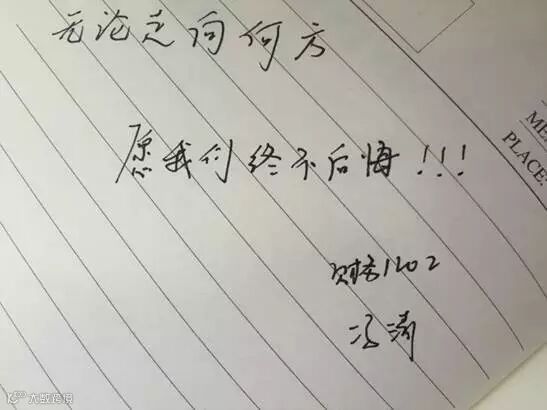 无论走向何方
愿我们终不后悔!!!
财务1202
冯涛
ME
PLACE:
大数跨境